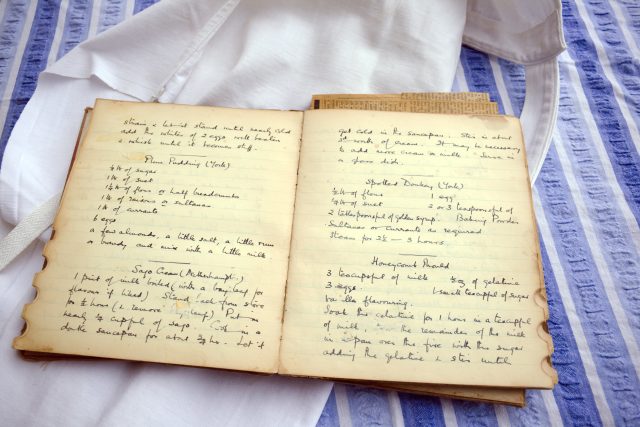 strain & let it stand until nearly cold
add the whites of 2 eggs well beaten
& whisk until it becomes stiff.
Plum Pudding (York)
of sugar
1 lb of suet
of flour or half breadcrumbs
1 lb of raisins or sultanas
1 lb of currants
6 eggs
a few almonds, a little salt, a little rum
or brandy and mix with a little milk
Sago Cream
1 pint of milk boiled (with a bay leaf for
flavour if liked) Stand back from stove
for ½ hour (& remove leaf) Put in
nearly ½ cupful of sago. Cook in a
double saucepan for about ¾ hr. Let it
get cold in the saucepan. Stir in about
of cream. It may be necessary
to add more cream or milk. Serve in
a glass dish.
Spotted Donkey (York)
½ lb of flour 1 egg
¼ lb of suet 2 or 3 teaspoonsful of
2 tablespoonsful of golden syrup. Baking Powder
Sultanas or Currants as required
Steam for 2½ — 3 hours.
Honeycomb Mould
3 teacupsful of milk ½ oz of gelatine
3 eggs. 1 small teacupful of sugar
Vanilla flavouring.
Soak the gelatine for 1 hour in a teacupful
of milk. the remainder of the milk
in a pan over the fire with the sugar
adding the gelatine & stir until